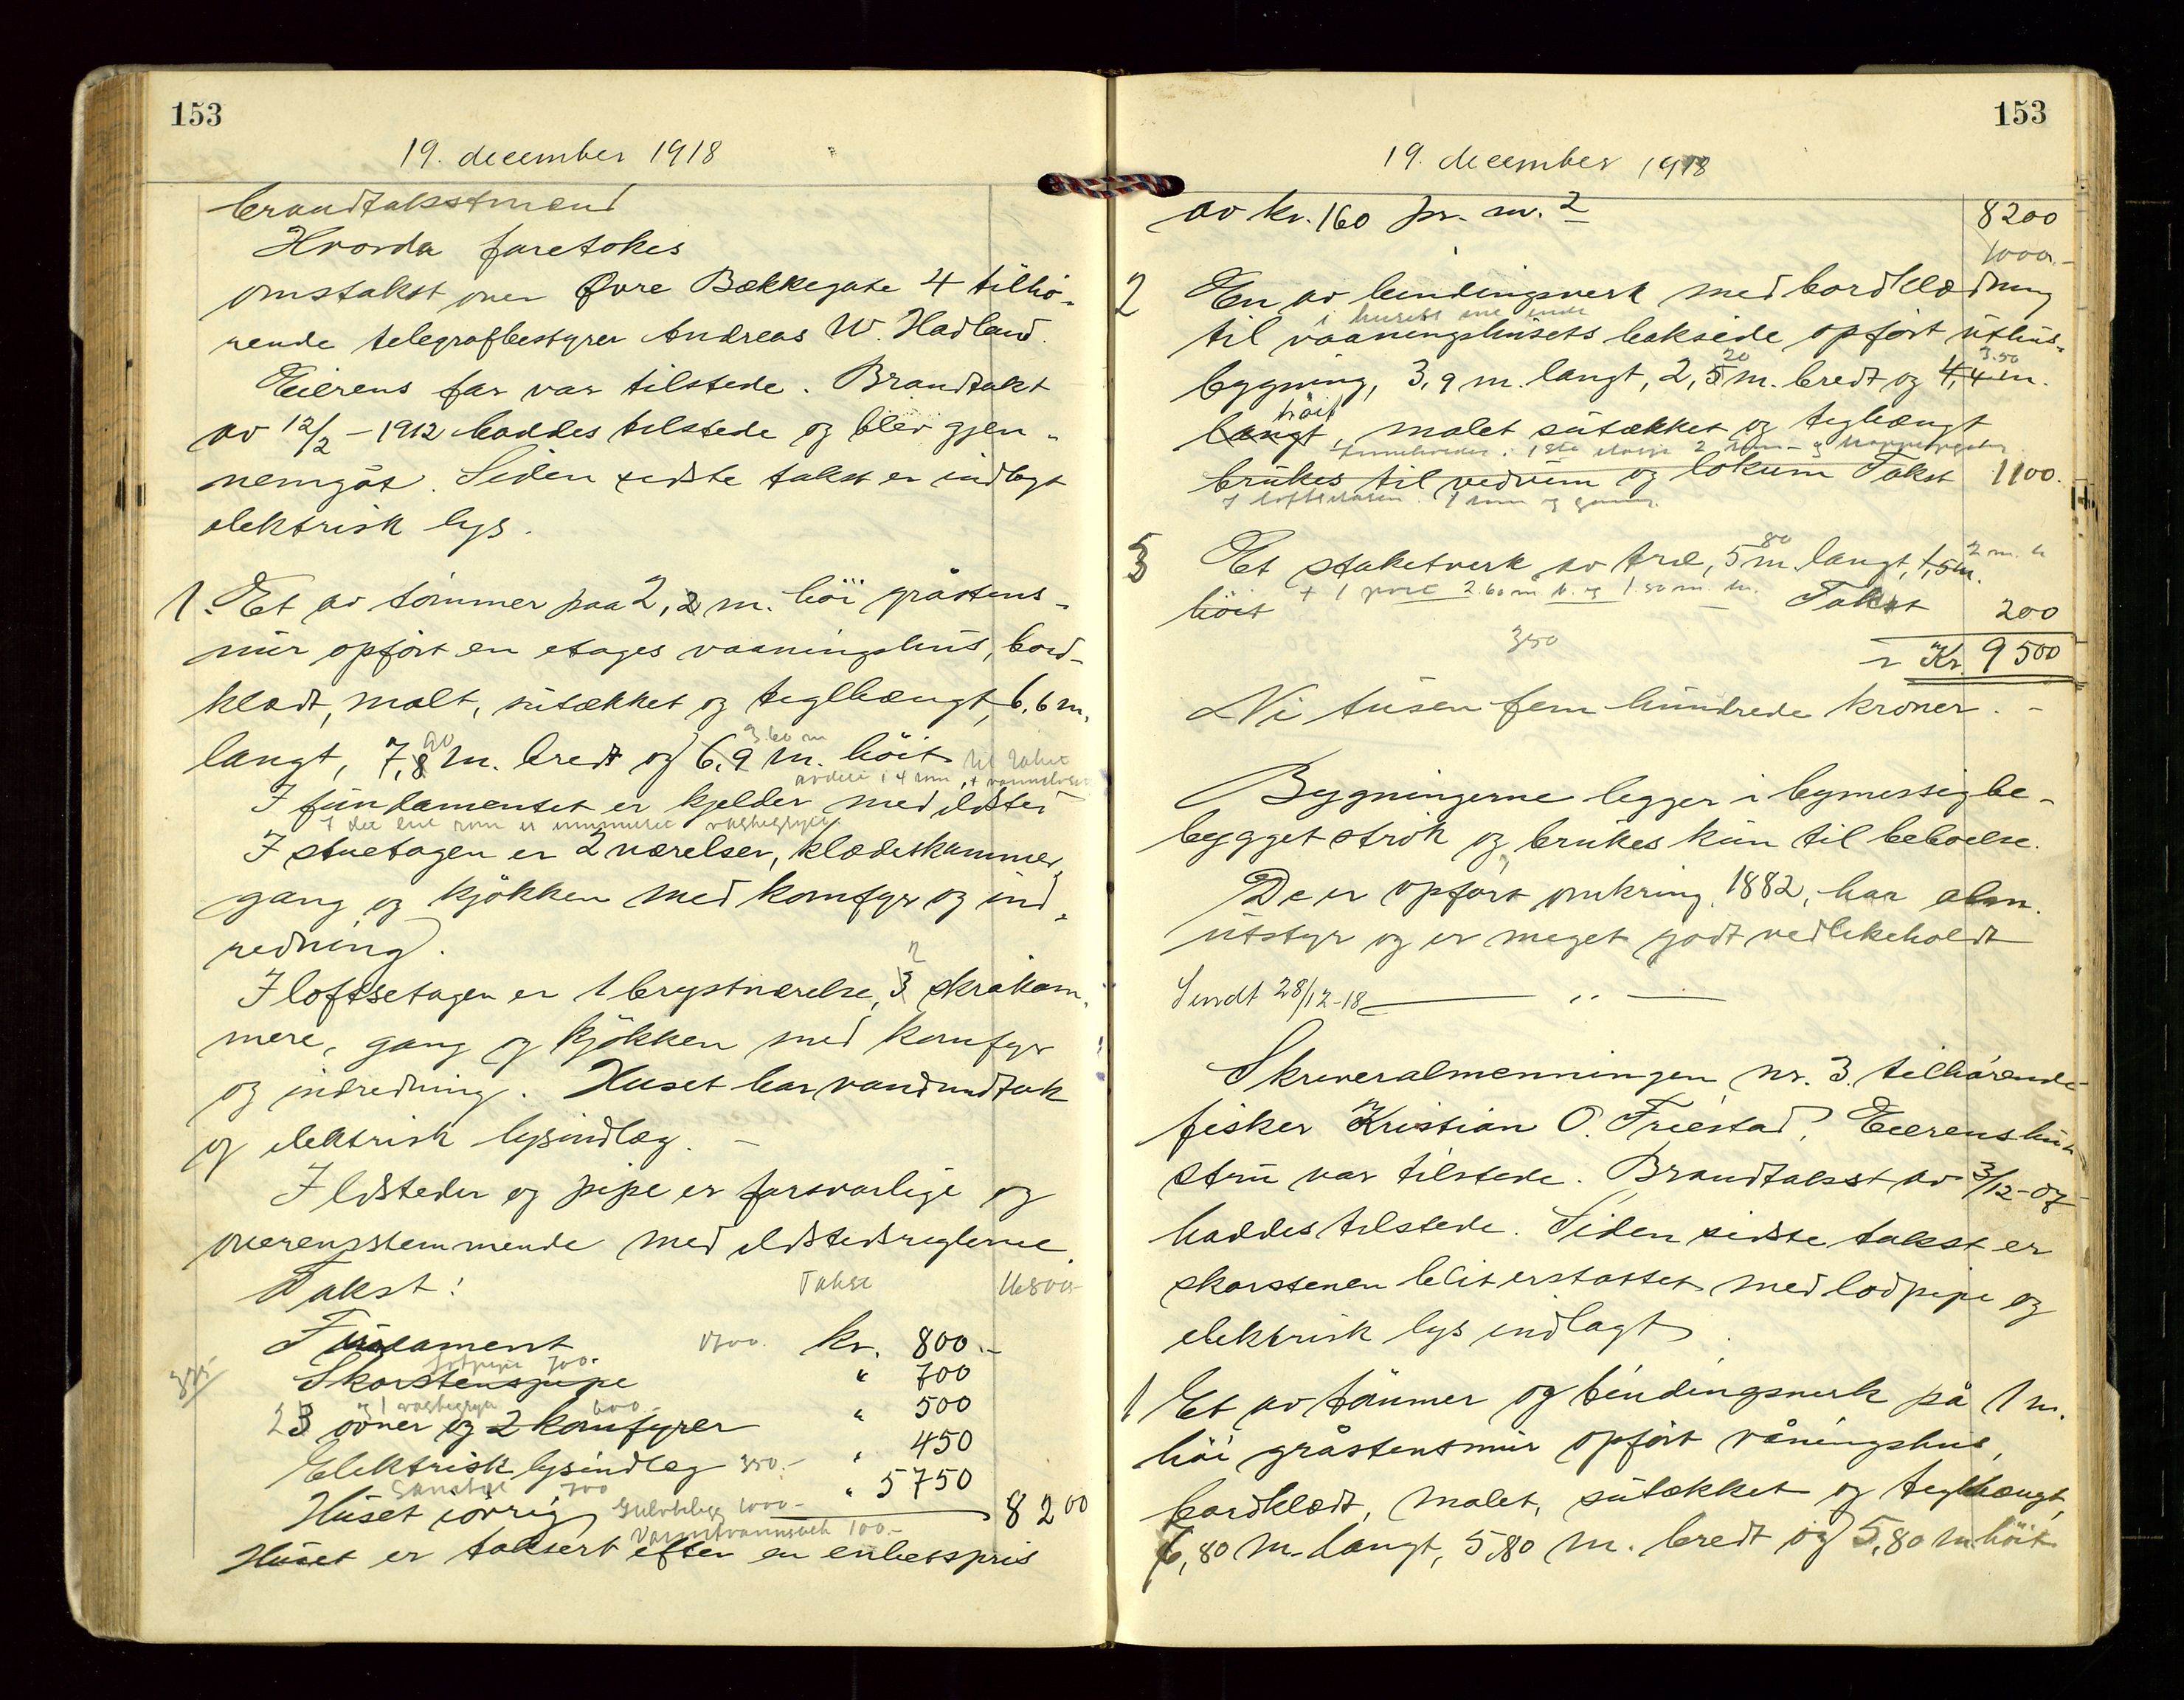 153
19. december 1918
brandtakstmænd
Hvorda foretokes
omstakst over Øvre Bækkegate 4 tilhö-
rende telegrafbestyrer Andreas W. Hadland.
Eierens far var tilstede. Brandtakt
av 12/2 - 1912 haddes tilstede og blev gjen-
nemgåt. Siden sidste takst er indlagt
elektrisk lys.
1. Et av tömmer paa 2,2 m. höi gråstens-
mur opfört en etages vaaningshus, bord-
klædt, malt, sutækket og teglhængt, 6,6 m.
90 3.60 m
langt, 7,8 m. bredt og 6,9 m. höit til taket
avdelt i 4 rum, + vannklosett
I fundamentet er kjelder med ildsted
I det ene rom er innmuret vaskegryte.
I stuetagen er 2 værelser, klædeskammer,
gang og kjökken med komfyr og ind-
redning.
2
I loftsetagen er 1 brystværelse, 3 skråkam-
mere, gang og kjökken med komfyr
og indredning. Huset har vandundtak
og elektrisk lysindlæg. -
Ildsteder og pipe er forsvarlige og
overensstemmende med ildstedsreglerne
Takst: Takst 16800-
Fundament 1700. kr. 800.-
Lodpipe 700.-
Skorstenspipe " 700
og 1 vaskegryte 600.-
23 ovner og 2 komfyrer " 500
Elektrisk lysindlæg 350.- " 450
Sanitær 700
Huset iövrig Gulvbelegg 1000.- " 5750 8200
Varmtvannstank 100.-
Huset er taksert efter en enhetspris
153
19. december 1918
av kr. 160 pr. m.2 8200
1000.-
2 En av bindingsverk med bordklædning
i husets ene ende
til vaaningshusets bakside opfört uthus-
20 3.50
bygning, 3,9 m. langt, 2,5 m. bredt og 4,4 m.
höit
langt, malet sutækket og teglhængt
Inneholder: i 1ste etasje 2 rum - og trappeopgang
brukes til vedrum og lokum Takst 1100.
I loftsetasjen. 1 rum og gang.
80 2 m. h
3 Et staketverk av træ, 5 m. langt, 1,5 m.
+ 1 port 2.60 m. b. og 1.50 m. h.
höit Takst 200
350
Kr. 9500
Ni tusen fem hundrede kroner. -
Bygningerne legger i bymessig be-
bygget strök og brukes kun til beboelse.
De er opfört omkring 1882, har alm.
utstyr og er meget godt vedlikeholdt
Sendt 28/12-18
Skreveralmenningen nr. 3. tilhörende
fisker Kristian O. Friestad. Eierens hus-
stru var tilstede. Brandtakst av 3/12-07
haddes tilstede. Siden sidste takst er
skorstenen blit erstattet med lodpipe og
elektrisk lys indlagt.
1 Et av tömmer og bindingsverk på 1 m.
höi gråstensmur opfört våningshus,
bordklædt, malet, sutækket og teglhængt,
6,80 m. langt, 5,80 m. bredt og 5,80 m. höit